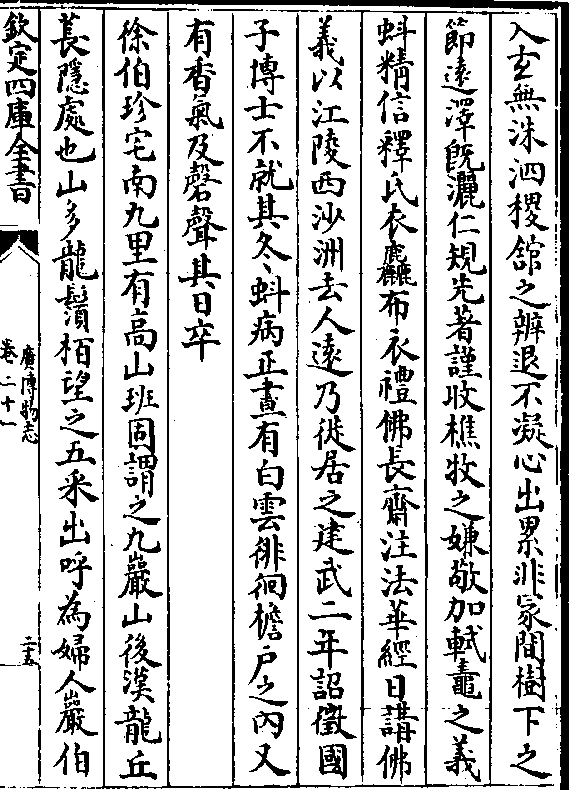 入玄無洙泗稷舘之辨退不凝心出累非冢間樹下之
節遠澤旣灑仁規先著謹收樵牧之嫌敬加軾鼃之義
蚪精信釋氏衣麤布衣禮佛長齋注法華經日講佛
義以江陵西沙洲去人遠乃徙居之建武二年詔徵國
子博士不就其冬蚪病正晝有白雲徘徊檐户之内又
有香氣及磬聲其日卒
徐伯珍宅南九里有高山班固謂之九巖山後漢龍丘
萇隱處也山多龍鬚柏望之五采出呼為婦人巖伯
欽定四庫全書
廣博物志
卷二十一
二十五